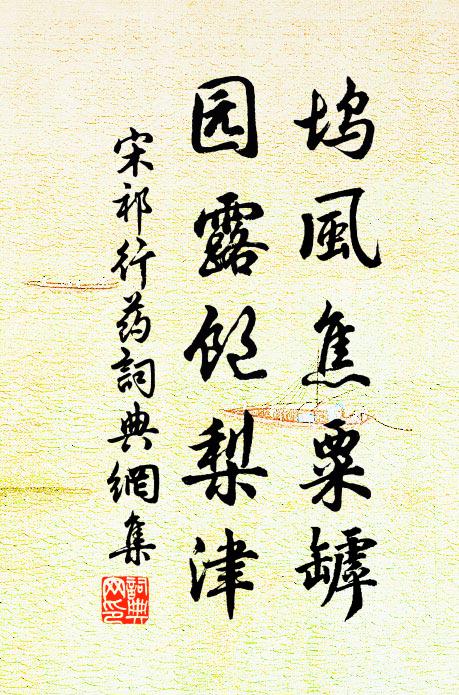 坞風焦栗罅
园露飽梨津
宋祁行药詞典網集
詞典
网印